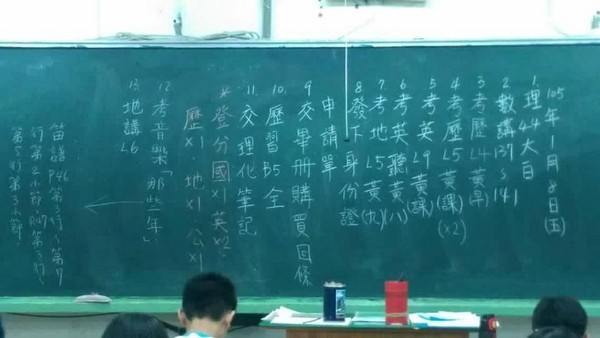 105年1月8日(五)
1.理44大目
2.數講137~141
3.考歷L4黃(平)
4.考歷L5黃(課)(x2)
5.考英L9黃(課)
6.考英聽黃(八)
7.考地L5黃(九)
8.發下身份證
申請單
9.交畢冊購買回條
10.歷習B5全
11.交理化筆記
*登分國x1英x2
歷x1、地x1、公x1
12.考音樂「那些年」
13.地講L6
笛譜P46第
行第2小節~P47第
第3小節